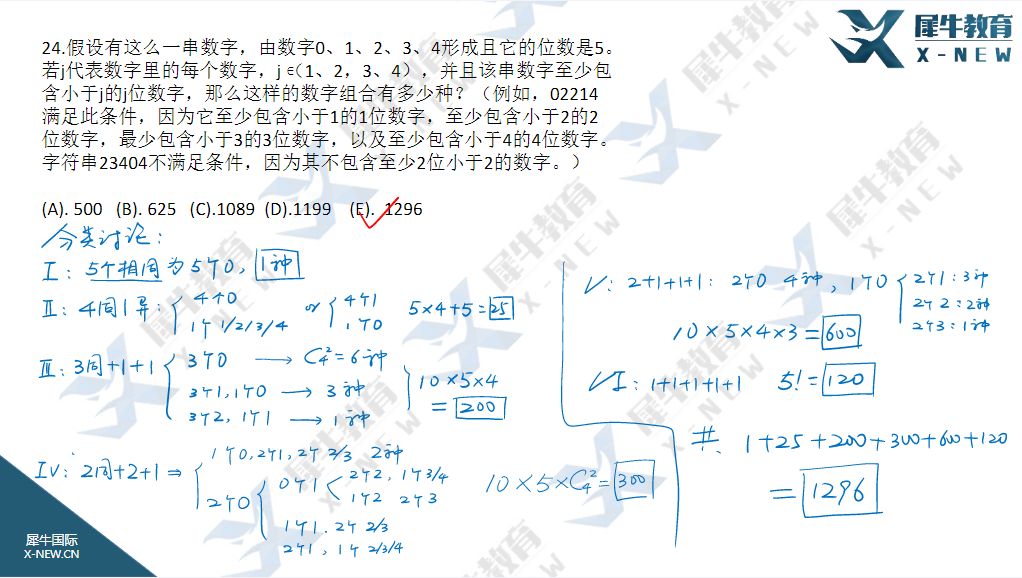 犀牛教育
X-NEW
24.假设有这么一串数字，由数字0、1、2、3、4形成且它的位数是5。
若j代表数字里的每个数字，j ∈(1、2，3、4），并且该串数字至少包
含小于j的j位数字，那么这样的数字组合有多少种？（例如，02214
满足此条件，因为它至少包含小于1的1位数字，至少包含小于2的2
位数字，最少包含小于3的3位数字，以及至少包含小于4的4位数字。
字符串23404不满足条件，因为其不包含至少2位小于2的数字。）
(A). 500 (B). 625 (C).1089 (D).1199 (E). 1296
分类讨论：
I：5个相同为5个0，1种
II：4同1异：4个0 1个1/2/3/4 or 4个1 1个0 5×4+5=25
III：3同+1+1
3个0 → C₄²=6种
3个1,1个0 → 3种
3个2,1个1 → 1种
10×5×4
= 200
IV：2同+2+1 ⇒
1个0,2个1,2个2/3 2种
2个0
0个1 2个2，1个3/4
1个2 2个3
1个1.2个2/3
2个1，1个2/3/4
10×5×C₄²=300
V：2+1+1+1：2个0 4种，1个0
2个1：3种
2个2：2种
2个3：1种
10×5×4×3=600
VI：1+1+1+1+1 5!=120
共 1+25+200+300+600+120
=1296
犀牛国际
X-NEW.CN